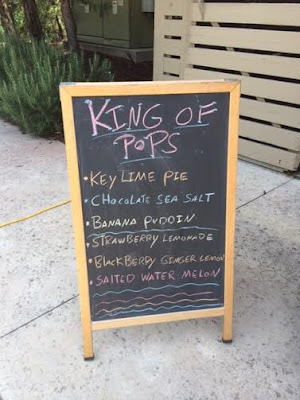 KING OF
POPS
• KEY LIME PIE
• CHOCOLATE SEA SALT
• BANANA PUDDIN
• STRAWBERRY LEMONADE
• BLACKBERRY GINGER LEMON
• SALTED WATER MELON